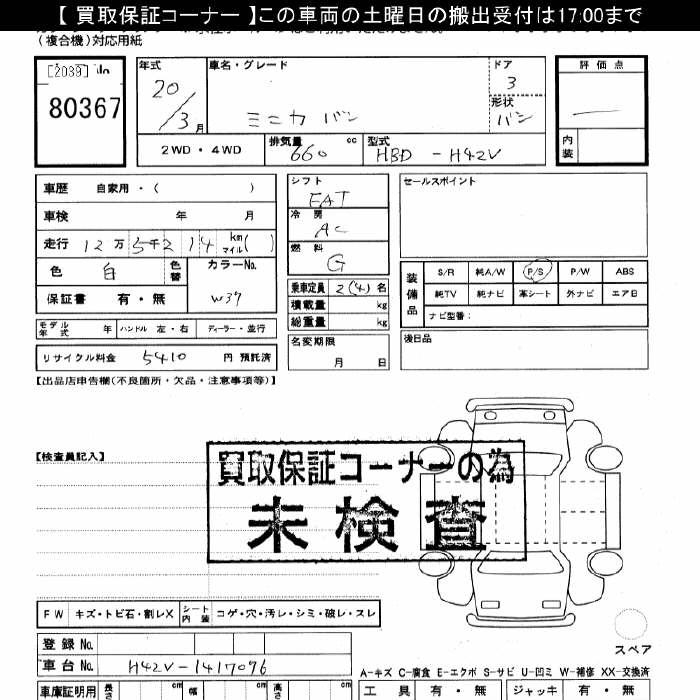 【 買取保証コーナー 】この車両の土曜日の搬出受付は17:00まで
(複合機)対応用紙
[2039] No
80367
年式
20/3月
車名・グレード
ミニカ バン
ドア
3
形状
バン
評価点
—
内装
2WD・4WD
排気量 660 cc
型式 HBD - H42V
車歴 自家用・( )
車検 年 月
走行 12万5千214 km マイル( )
色 白 色替
カラーNo. W37
保証書 有・無
モデル年式 年 ハンドル 左・右 ディーラー・並行
リサイクル料金 5410 円 預託済
シフト FAT
冷房 AC
燃料 G
乗車定員 2(4)名
積載量 kg
総重量 kg
名変期限
月 日
セールスポイント
装備品
S/R 純A/W P/S P/W ABS
純TV 純ナビ 革シート 外ナビ エアB
ナビ型番:
後日品
【出品店申告欄(不良箇所・欠品・注意事項等)】
【検査員記入】
買取保証コーナーの為
未検査
FW キズ・トビ石・割レX シート内装 コゲ・穴・汚レ・シミ・破レ・スレ
登録No.
車台No. H42V-1417096
スペア
A-キズ C-腐食 E-エクボ S-サビ U-凹ミ W-補修 XX-交換済
車庫証明用 長さ cm 幅 cm 高さ cm
工具 有・無 ジャッキ 有・無